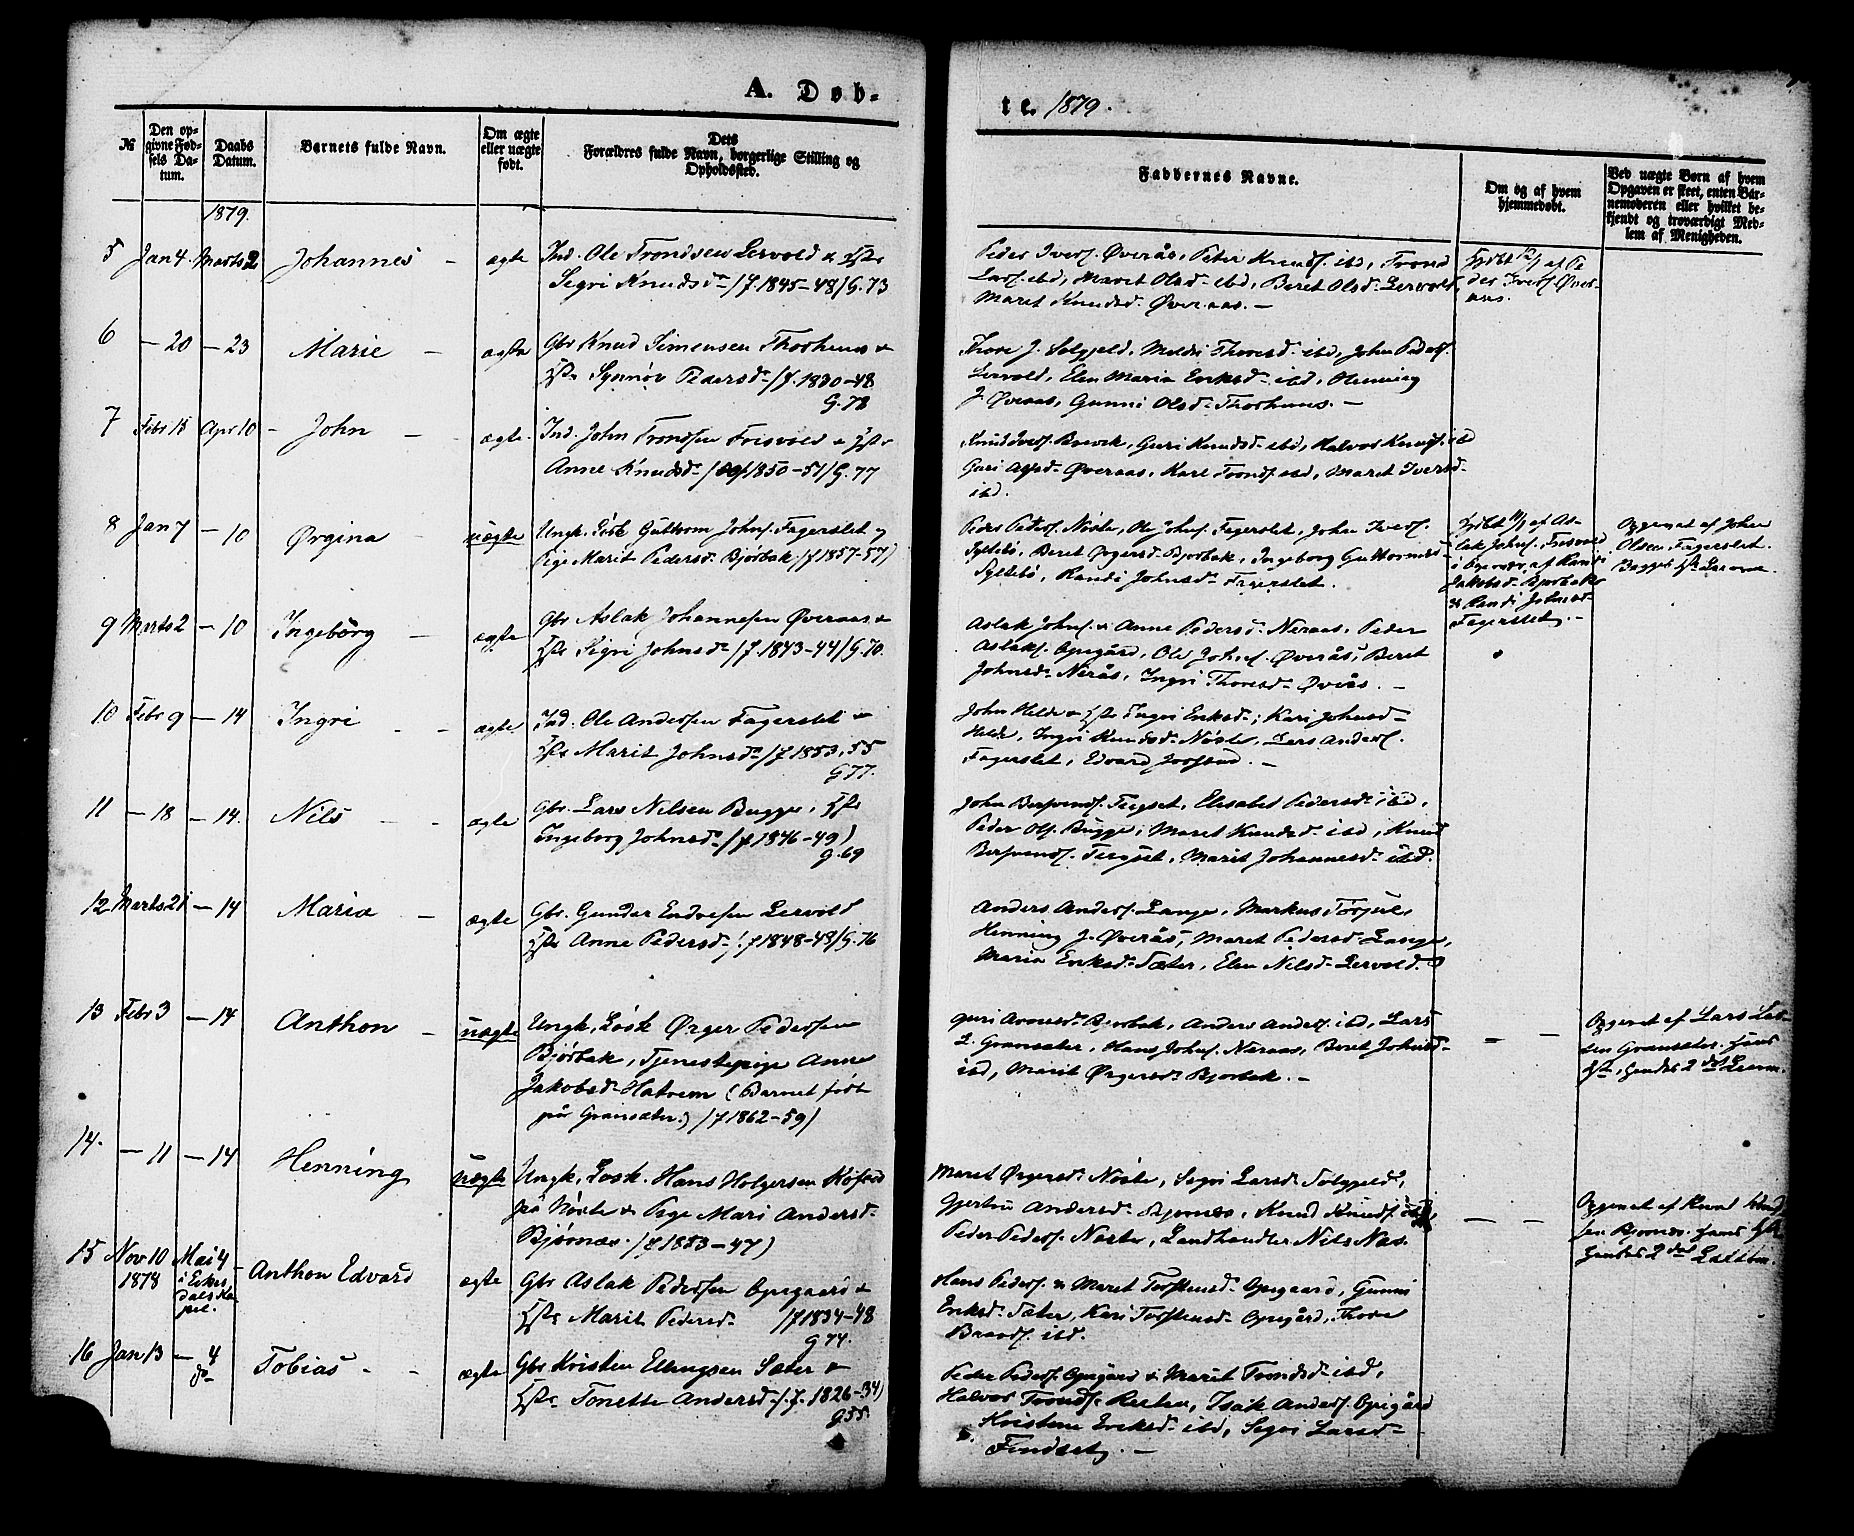 A. Døb-
te. 1879.
№
Den op-
givne Fød-
sels Da-
tum.
Daabs
Datum.
Barnets fulde Navn.
Om ægte
eller uægte
født.
Dets
Forældres fulde Navn, borgerlige Stilling og
Opholdssted.
Faddernes Navne.
Om og af hvem
hjemmedøbt.
Ved uægte Børn af hvem
Opgaven er skeet, enten Bar-
nemoderen eller hvilket be-
kjendt og troværdigt Med-
lem af Menigheden.
1879.
5 Jan 4. Marts 2 Johannes - ægte Ind. Ole Trondsen Lervold &
Segri Knudsdr /f. 1845-48/G. 73
Peder Ivers. Øverås, Peter Knuds. ibd, Trond
Lars. ibd, Maret Olsd. ibd, Beret Olsd. Lervold,
Maret Knudsd. Øveraas. -
af Pe
der Ivers. Øver-
aas.
6 - 20 - 23 Marie - ægte Gbr Knud Simensen Thorhuus &
Synnøv Pedersd. /f. 1830-48
G. 78
Thore J. Solgjeld, Meldri Thoresd. ibd, John Peders.
Lervold, Elen Maria Eriksd. ibd, Henning
J. Øveraas, Gunni Olsd. Thorhuus. -
7 Febr 15 Apr 10 - John - ægte. Ind. John Trondsen Frisvold &
Anne Knudsdr 1850-51/G. 77
Knud Ivers. Brevik, Guri Knudsd. ibd, Halvor Knuds. ibd
Guri Øveraas, Karl Tronds. ibd, Maret Iversd.
ibd.
8 Jan 7 - 10 Ørgina uægte Ungk. Løsk Guttorm Johns. Fagerslet og
Pige Marit Pedersd. Bjørbak /f 1857-57)
Peder Peders. Nøste, Ole Johns. Fagerslet, Johan Ivers.
Syltebø, Beret Ørgersd. Bjorbak, Ingeborg Guttormsd.
Syltebø, Randi Johnsd. Fagerslet.
af As-
lak Johns. Frisvold
af Randi
Jakobsd. Bjorbak
& Randi Johnsd.
Fagerslet. -
Opgivet af Johan
Olsen Fagerslet.
9 Marts 2 - 10 Ingebørg - ægte Gbr Aslak Johannesen Øveraas &
Sigri Johnsdr /f. 1843-44/G. 70.
Aslak Johns. & Anne Pedersd. Neraas, Peder
Aslaks. Opigård, Ole Johns. Øverås, Beret
Johnsd. Nerås, Ingri Thoresd. Øverås. -
10 Febr 9 - 14 Ingri - - ægte Ind. Ole Andersen Fagerslet &
Marit Johnsdr /f 1853, 55
G 77.
John Helde & Ingri Eriksd., Kari Johnsd.
Helde, Ingri Knudsd. Nøste, Lars Anders.
Fagerslet, Edvard -
11 - 18 - 14. Nils - - ægte Gbr. Lars Nilsen Bugge,
Ingeborg Johnsdr /f 1846-49)
G. 69
John Tiugset, Elisabet Pedersd. ibd,
Peder Ols. Bugge, Maret Knudsd. ibd, Knud
Tiugset, Marit Johannesd. ibd.
12 Marts 21 - 14 Maria - ægte Gbr. Gunder Endresen Lervold
Anne Pedersd. /f 1848-48/G. 76
Anders Anders. Lange, Markus
Henning J. Øverås, Maret Pedersd. Lange,
Maria Eriksd. Sæter, Elen Nilsd. Lervold.
13 Febr 3 - 14 Anthon - uægte Ungk. Løsk Ørger Pedersen
Bjørbak, Tjenestepige Anne
Jakobsd. Hatrem (Barnet født
på Gransæter.) /f 1862-59)
Guri Arnesd. Bjorbak, Anders Anders. ibd, Lars
L. Gransæter, Hans Johns. Neraas, Beret Johnsd.
ibd, Marit Ørgersd. Bjorbak. -
- -
Opgivet af Lars Lar-
sen Gransæter.
14. - 11 - 14 Henning uægte Ungk. Løsk. Hans Holgersen
på Nøste & Pige Mari Andersd.
Bjørnæs. /f 1853-47)
Maret Ørgersd. Nøste, Segri Larsd. Solgjeld,
Gjertrud Andersd. Bjørnæs, Knud Knuds. ibd,
Peder Peders. Nøste, Landhandler Nils Næs.
- -
Opgivet af Knud Knud
sen Bjørnæs.
15 Nov 10
1878
Mai 4
i Eikes-
dals Ka-
pel.
- Anthon Edvard ægte Gbr Aslak Pedersen Opigaard &
Marit Pedersd. /f 1834-48
G 74.
Hans Peders. & Maret Torstensd. Opigaard, Gunni
Eriksd. Sæter, Kari Torstensd. Opigård, Thore
Brands. ibd.
16 Jan 13 - 4 Tobias - - ægte Gbr Kristen Ellingsen Sæter &
Tonette Andersd. /f. 1826-34)
G 55.
Peder Peders. Opigård & Marit Trondsd. ibd,
Halvor Tronds. Reiten, Isak Anders. Opigård
Kristine Eriksd. ibd, Segri Larsd.
Findset. -